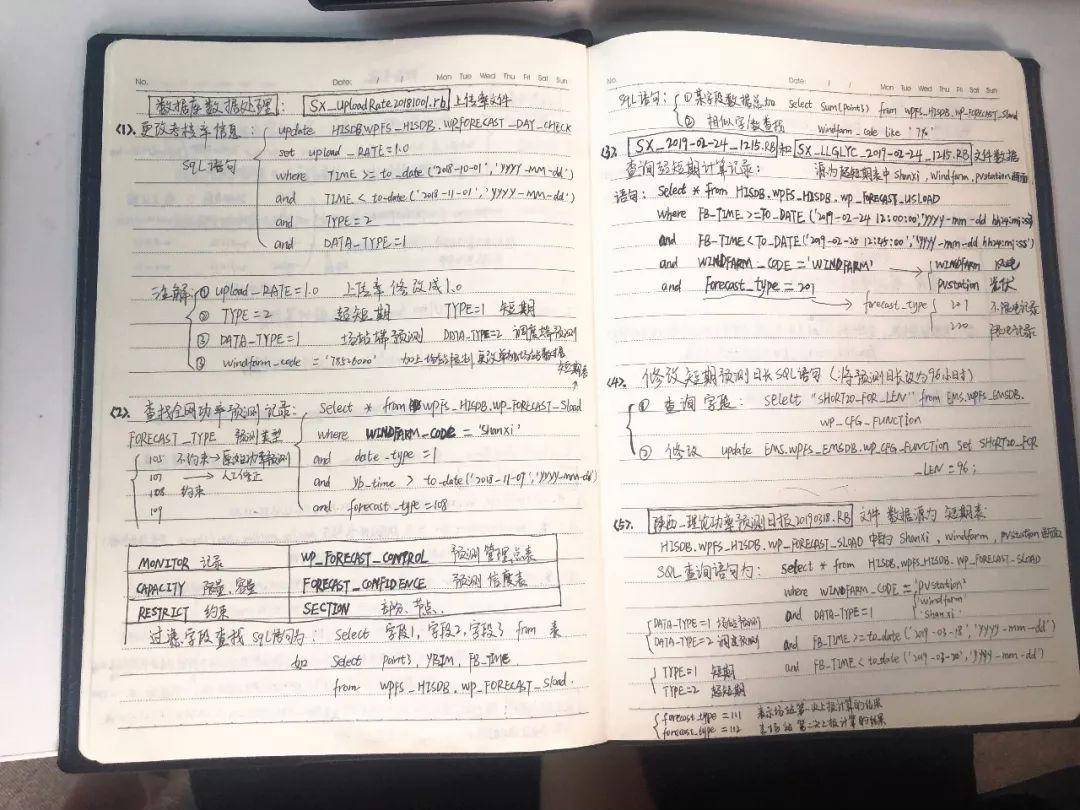 No. Date: / / Mon Tue Wed Thu Fri Sat Sun
数据库数据处理: SX_UploadRate20181001.rb 上传率文件
<1>. 更改考核率信息:
SQL语句
update HISDB.WPFS_HISDB.WP_FORECAST_DAY_CHECK
set upload_RATE=1.0
where TIME >= to_date('2018-10-01','yyyy-mm-dd')
and TIME < to_date('2018-11-01','yyyy-mm-dd')
and TYPE=2
and DATA_TYPE=1
注解
① upload_RATE=1.0 上传率修改成1.0
② TYPE=2 超短期 TYPE=1 短期
③ DATA_TYPE=1 场站端预测 DATA_TYPE=2 调度端预测
④ windfarm_code = '78526000' 加上场站限制,更改单个场站数据
短期表
<2>. 查找全网功率预测记录:
select * from WPFS_HISDB.WP_FORECAST_Sload
where WINDFARM_CODE = 'Shanxi'
and date_type=1
and yb_time > to_date('2018-11-07','yyyy-mm-dd')
and forecast_type=108
FORECAST_TYPE 预测类型
105 不约束→原始功率预测
107 → 人工修正
108 约束
109
MONITOR 记录 WP_FORECAST_CONTROL 预测管理总表
CAPACITY 限量,容量 FORECAST_CONFIDENCE 预测信度表
RESTRICT 约束 SECTION 部分、节点..
过滤字段查找SQL语句为: Select 字段1,字段2,字段3 from 表
如 Select point3, YBTIM, FB_TIME
from WPFS_HISDB.WP_FORECAST_Sload.
No. Date: / / Mon Tue Wed Thu Fri Sat Sun
SQL语句: ① 某字段数据总加 Select Sum(point3) from WPFS_HISDB.WP_FORECAST_Sload
② 相似字/数查找 windfarm_code like '7%'
<3>. SX_2019-02-24_1215.RB 和 SX_LLGLYC_2019-02-24_1215.RB 文件数据
查询超短期计算记录: 源为超短期表中 Shanxi, Windfarm, pvstation
语句: Select * from HISDB.WPFS_HISDB.WP_FORECAST_USLOAD
where FB-TIME >=TO_DATE('2019-02-24 12:00:00','yyyy-mm-dd hh24:mi:ss')
and FB-TIME<TO_DATE('2019-02-25 12:45:00','yyyy-mm-dd hh24:mi:ss')
and WINDFARM_CODE='WINDFARM' → WINDFARM 风电
PVSTATION 光伏
and Forecast_type = 201
→ forecast_type 201 不限电记录
220 限电记录
<4>. 修改短期预测日长SQL语句(将预测日长设为96小时)
① 查询字段: select "SHORT20_FOR_LEN" from EMS.WPFS_EMSDB.
WP_CFG_FUNCTION
② 修改 update EMS.WPFS_EMSDB.WP_CFG_FUNCTION set SHORT20_FOR
_LEN=96;
<5>. 陕西_理论功率预测日报20190318.RB 文件 数据源为 短期表:
HISDB.WPFS_HISDB.WP_FORECAST_SLOAD 中的 Shanxi, windfarm, pvstation
SQL 查询语句为: select * from HISDB.WPFS_HISDB.WP_FORECAST_SLOAD
where WINDFARM_CODE='PVstation'
'windfarm'
'Shanxi'
and DATA-TYPE=1
DATA-TYPE=1 场站预测
DATA-TYPE=2 调度预测
and FB-TIME>=to_date('2019-03-18','yyyy-mm-dd')
and FB-TIME<to_date('2019-03-20','yyyy-mm-dd')
TYPE=1 短期
TYPE=2 超短期
forecast_type=111 表示场站第一次上报计算的结果
forecast_type=112 表示场站第二次上报计算的结果